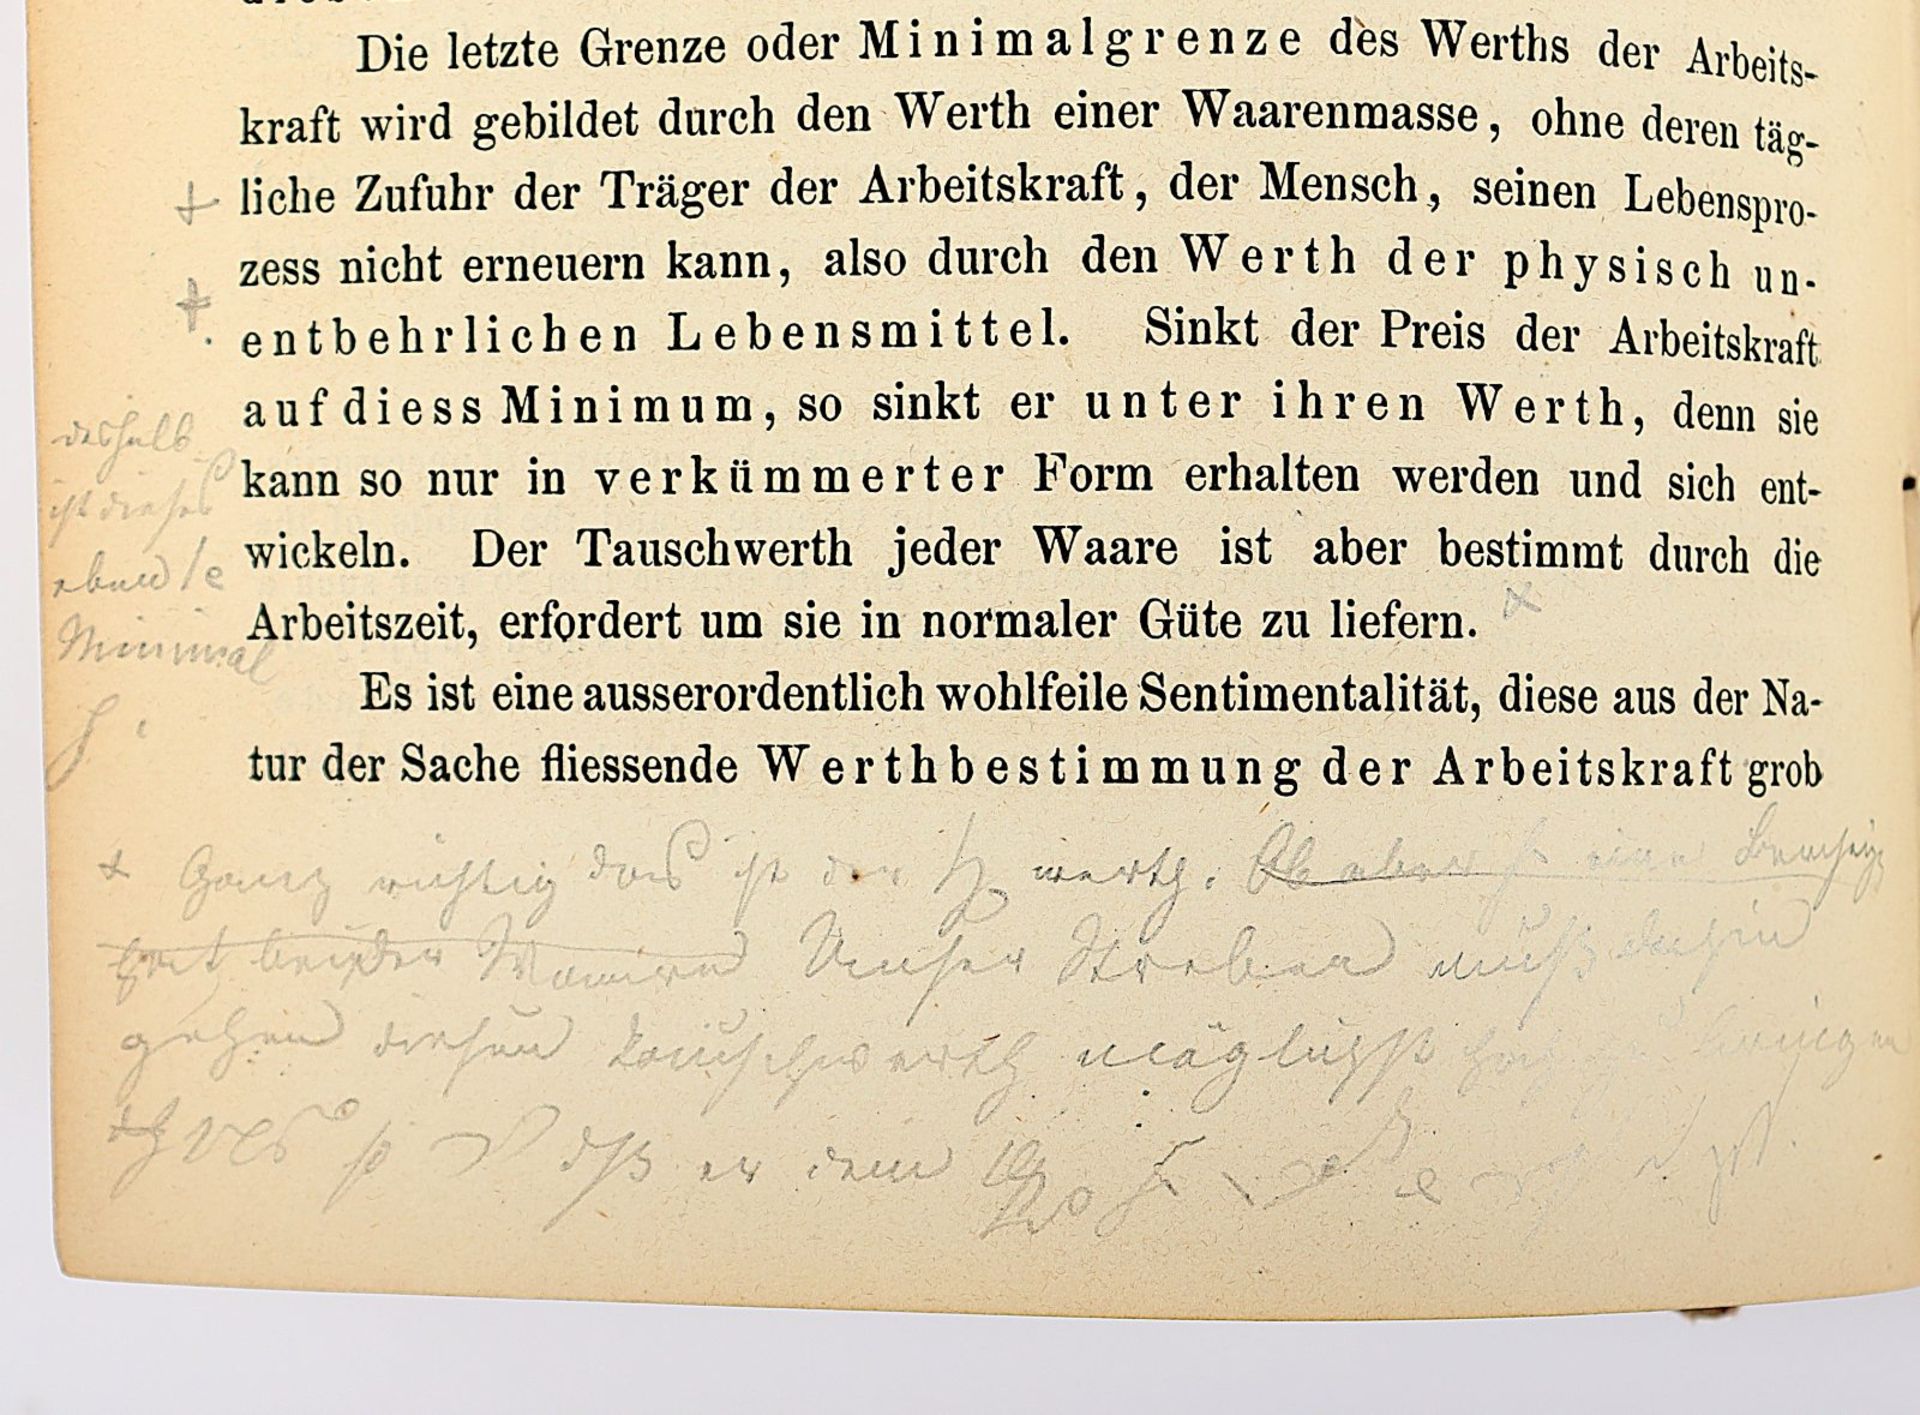 Die letzte Grenze oder Minimalgrenze des Werths der Arbeits-
kraft wird gebildet durch den Werth einer Waarenmasse, ohne deren täg-
liche Zufuhr der Träger der Arbeitskraft, der Mensch, seinen Lebenspro-
zess nicht erneuern kann, also durch den Werth der physisch un-
entbehrlichen Lebensmittel. Sinkt der Preis der Arbeitskraft
auf diess Minimum, so sinkt er unter ihren Werth, denn sie
kann so nur in verkümmerter Form erhalten werden und sich ent-
wickeln. Der Tauschwerth jeder Waare ist aber bestimmt durch die
Arbeitszeit, erfordert um sie in normaler Güte zu liefern.
Es ist eine ausserordentlich wohlfeile Sentimentalität, diese aus der Na-
tur der Sache fliessende Werthbestimmung der Arbeitskraft grob
deshalb
ist dieses
eben
Minimal
+ Ganz richtig das ist der werth. Ob aber eine
beider Unser Streben muß dahin
gehen diesen Tauschwerth möglichst hoch zu bringen
daß er dem